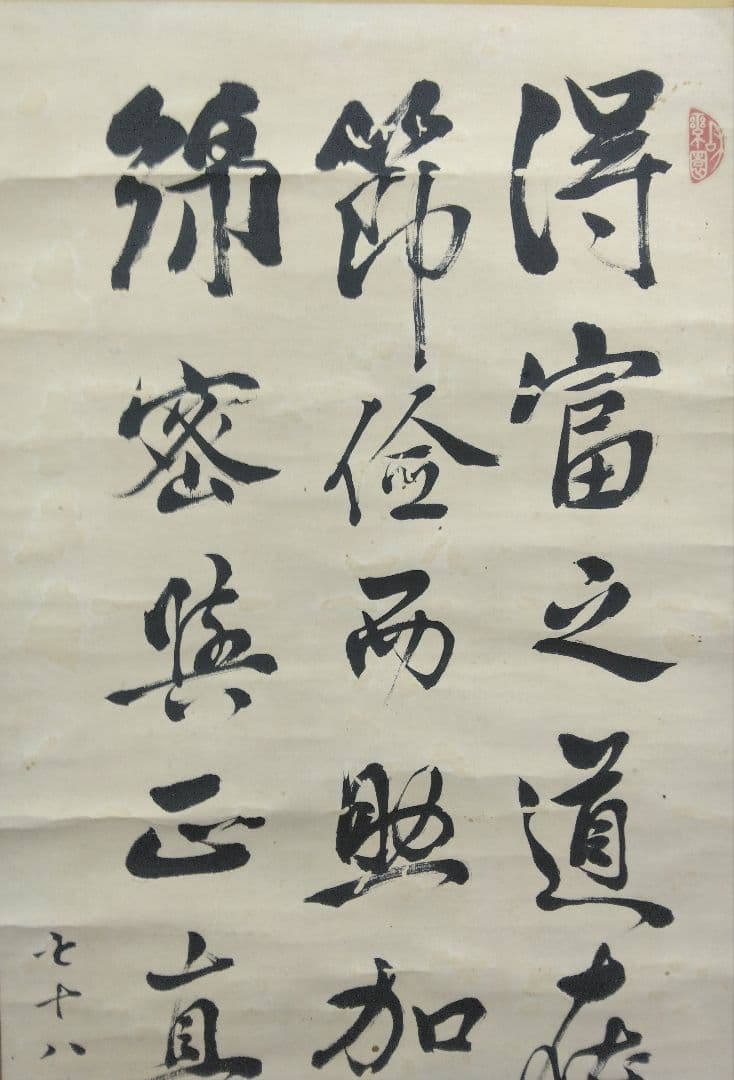 得富之道在
節儉而加
綿密與正直
七十八